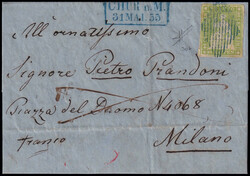 CHUR n.M.
31 MAI. 55
All'ornatissimo
Signore Pietro Prandoni
Piazza del Duomo N 4068
franco
Milano